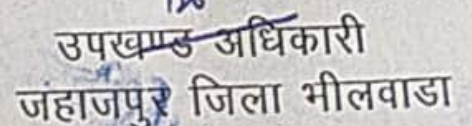 उपखण्ड अधिकारी
जंहाजपुर जिला भीलवाडा